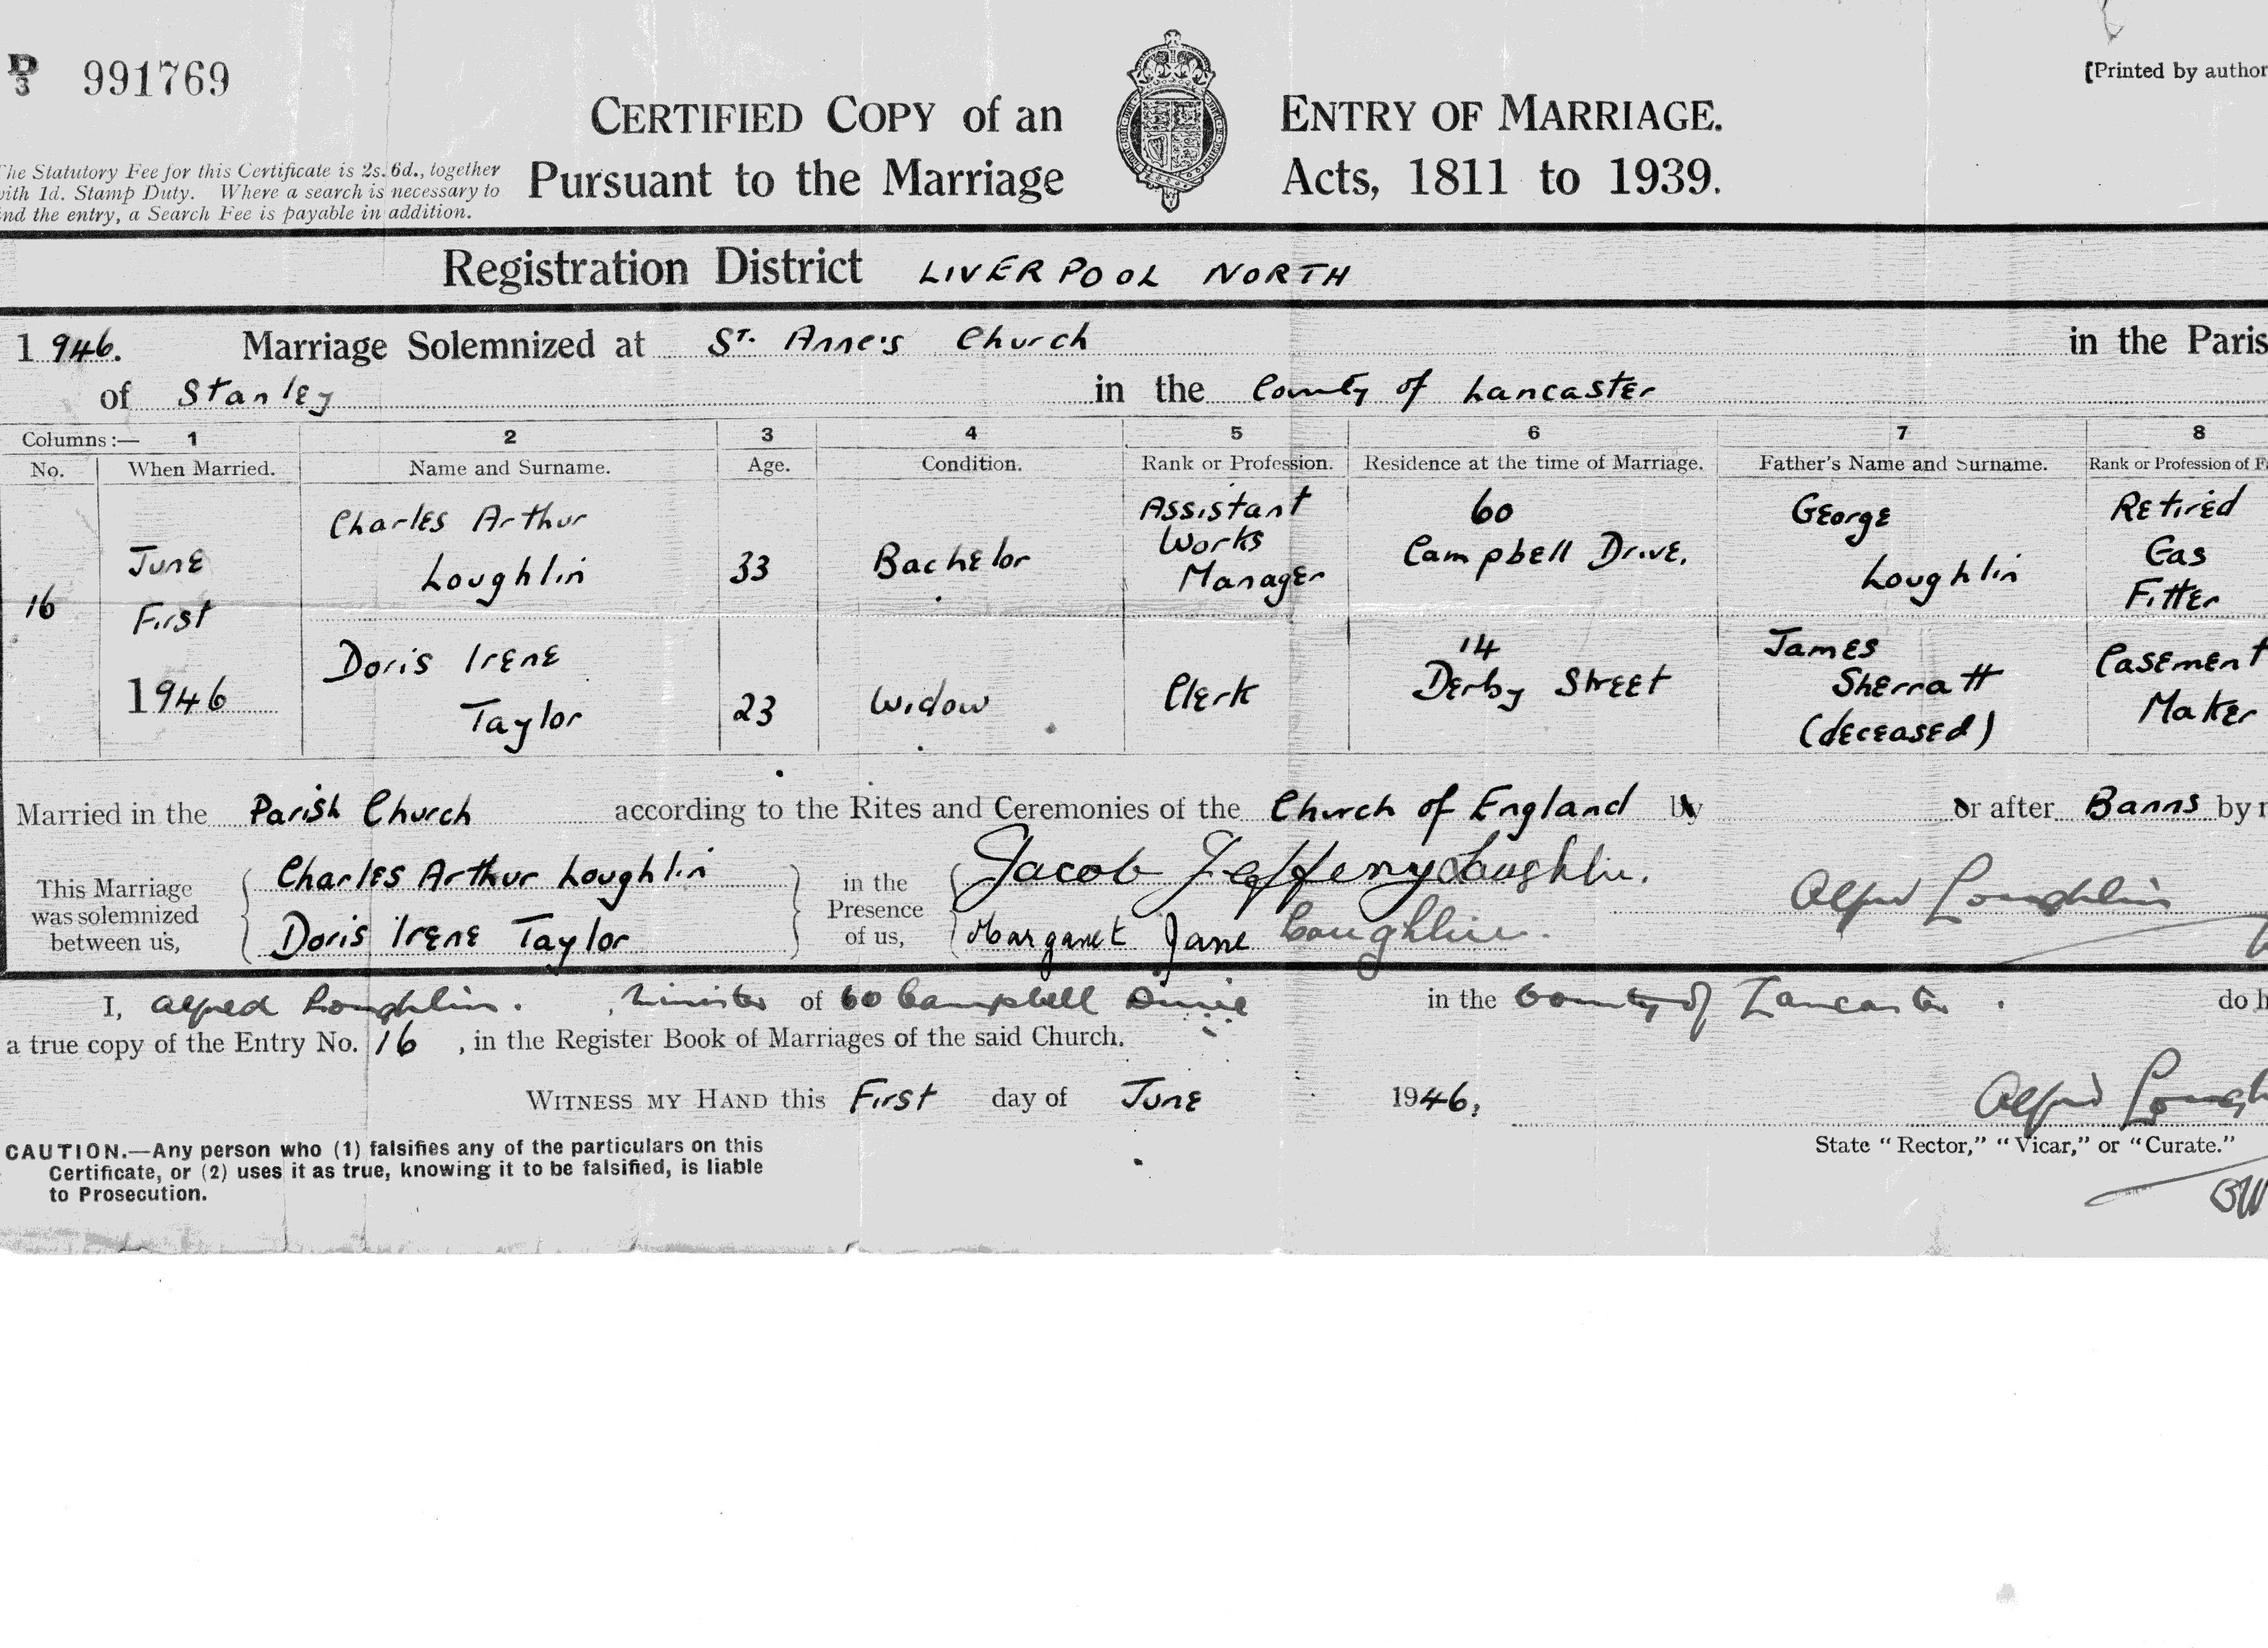 D
3
991769
[Printed by author
CERTIFIED COPY of an ENTRY OF MARRIAGE.
Pursuant to the Marriage Acts, 1811 to 1939.
The Statutory Fee for this Certificate is 2s. 6d., together
with 1d. Stamp Duty. Where a search is necessary to
ind the entry, a Search Fee is payable in addition.
Registration District LIVERPOOL NORTH
1946. Marriage Solemnized at St. Anne's Church in the Paris
of Stanley in the County of Lancaster
Columns:— 1 2 3 4 5 6 7 8
No. When Married. Name and Surname. Age. Condition. Rank or Profession. Residence at the time of Marriage. Father's Name and Surname. Rank or Profession of F
16
June
First
1946
Charles Arthur
Loughlin
33
Bachelor
Assistant
Works
Manager
60
Campbell Drive.
George
Loughlin
Retired
Gas
Fitter
Doris Irene
Taylor
23
Widow
Clerk
14
Derby Street
James
Sherratt
(deceased)
Casement
Maker
Married in the Parish Church according to the Rites and Ceremonies of the Church of England by or after Banns by
This Marriage
was solemnized
between us,
Charles Arthur Loughlin
Doris Irene Taylor
in the
Presence
of us,
Jacob Jeffery Loughlin.
Margaret Jane Loughlin.
Alfred Loughlin
I, Alfred Loughlin. , Minister of 60 Campbell Drive in the County of Lancaster . do h
a true copy of the Entry No. 16 , in the Register Book of Marriages of the said Church.
WITNESS MY HAND this First day of June 1946,
Alfred Lough
State "Rector," "Vicar," or "Curate."
CAUTION.—Any person who (1) falsifies any of the particulars on this
Certificate, or (2) uses it as true, knowing it to be falsified, is liable
to Prosecution.